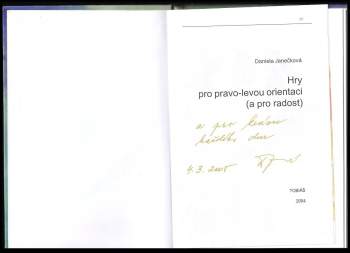 Daniela Janečková
Hry
pro pravo-levou orientaci
(a pro radost)
a pro
každého dne
4.3.2005
TOBIÁŠ
2004